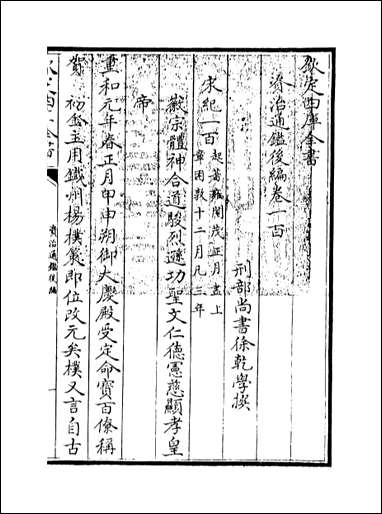 欽定四庫全書
資治通鑑後編卷一百
刑部尚書徐乾學撰
宋紀一百 起著雍閹茂正月盡上
章困敦十二月凡三年
徽宗體神合道駿烈遜功聖文仁德憲慈顯孝皇
帝
重和元年春正月甲申朔御大慶殿受定命寶百僚稱
賀 初金主用鐵州楊樸策即位改元矣樸又言自古
資治通鑑後編